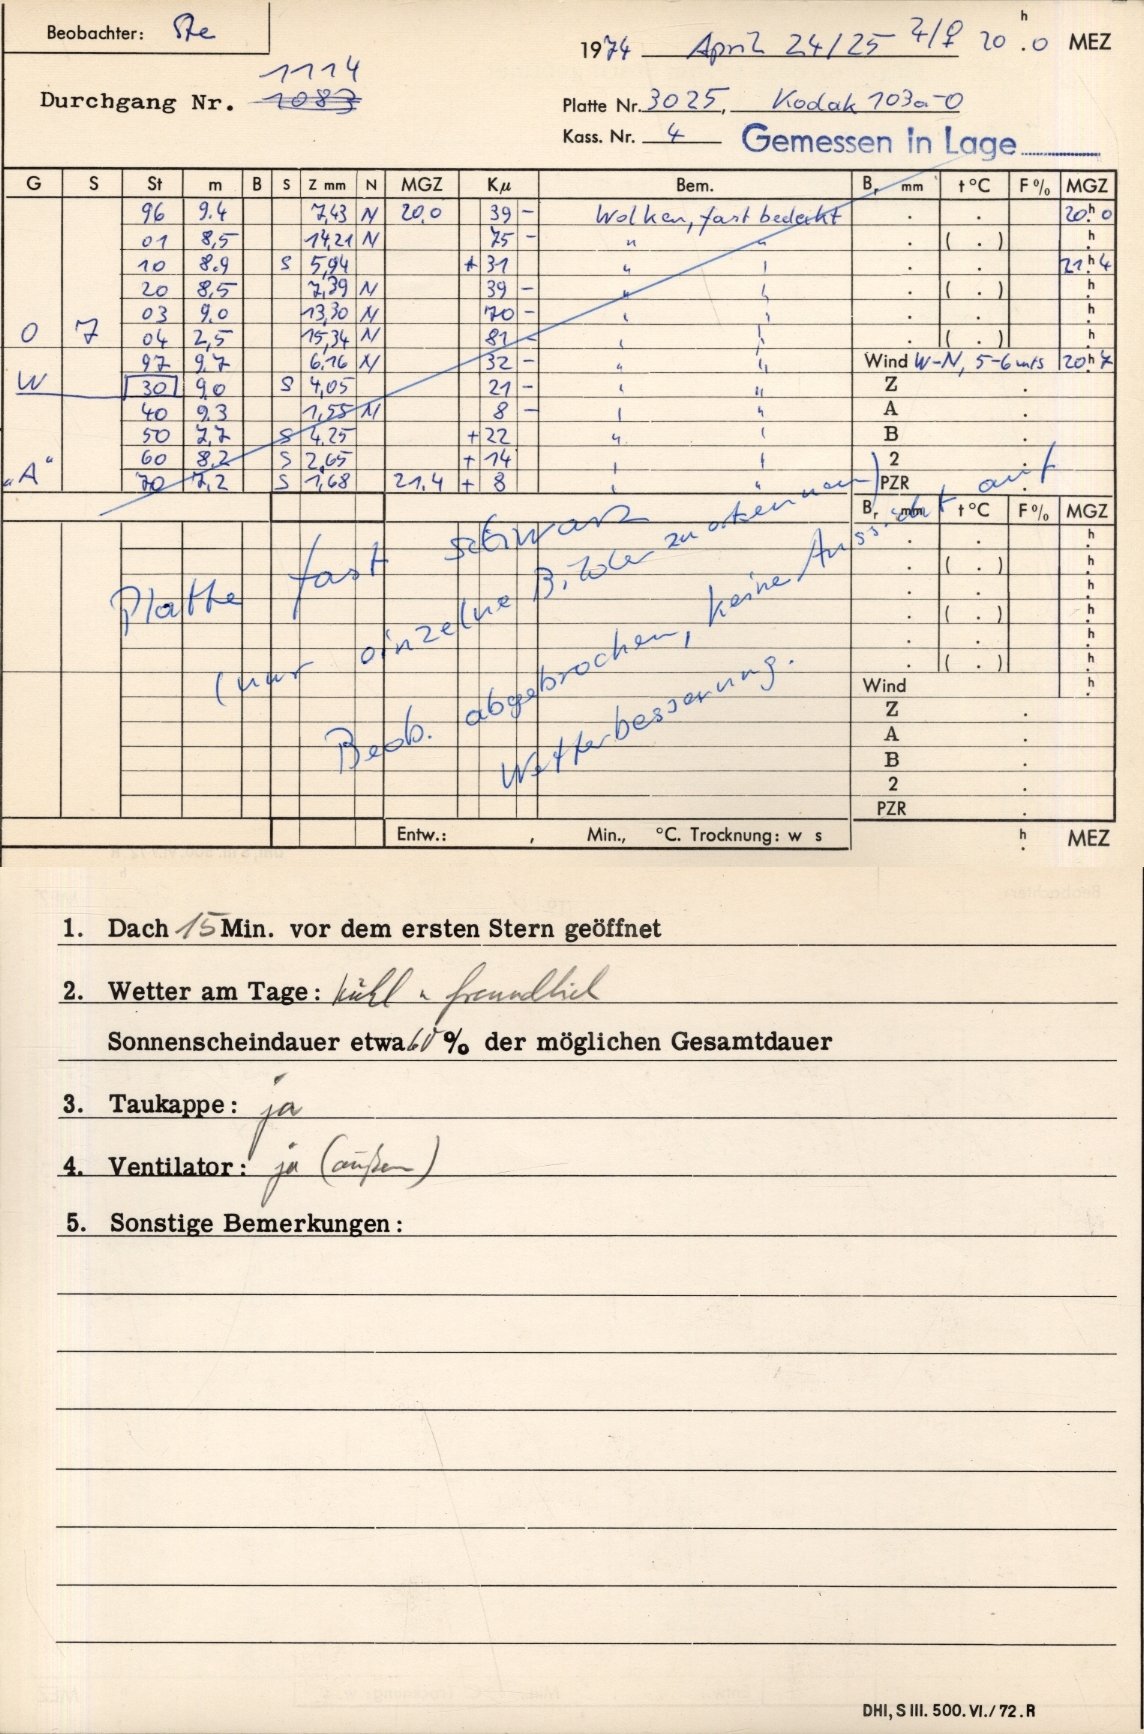 Beobachter: Ste
1974 April 24/25 20 h . 0 MEZ
1114
Durchgang Nr. 1083
Platte Nr. 3025, Kodak 103a-O
Kass. Nr. 4 Gemessen in Lage
G S St m B S Z mm N MGZ Kµ Bem. Br mm t°C F% MGZ
96 9.4 7,43 N 20,0 39 - Wolken, fast bedeckt . . 20 h 0
01 8,5 14,21 N 75 - " " . ( . ) h
10 8.9 S 5,94 + 31 " " . . 21 h 4
20 8,5 7,39 N 39 - " " . ( . ) h
03 9,0 13,30 N 70 - " " . . h
O 7 04 2,5 15,34 N 81 - " " . ( . ) h
97 9,7 6,16 N 32 - " " Wind W-N, 5-6 m/s 20 h 7
W 30 9,0 S 4,05 21 - " " Z .
40 9.3 1,55 N 8 - " " A .
50 7,7 S 4,25 + 22 " " B .
60 8,2 S 2,65 + 14 " " 2 .
"A" 70 7,2 S 1,68 21,4 + 8 " " PZR .
Br mm t°C F% MGZ
Platte fast schwarz
(nur einzelne Bilder zu erkennen)
Beob. abgebrochen, keine Aussicht auf
Wetterbesserung.
. . h
. ( . ) h
. . h
. ( . ) h
. . h
. ( . ) h
Wind h
Z .
A .
B .
2 .
PZR .
Entw.: , Min., °C. Trocknung: w s h . MEZ
1. Dach 15 Min. vor dem ersten Stern geöffnet
2. Wetter am Tage: kühl u freundlich
Sonnenscheindauer etwa 60 % der möglichen Gesamtdauer
3. Taukappe: ja
4. Ventilator: ja (außen)
5. Sonstige Bemerkungen:
DHI, S III. 500. VI./72. R